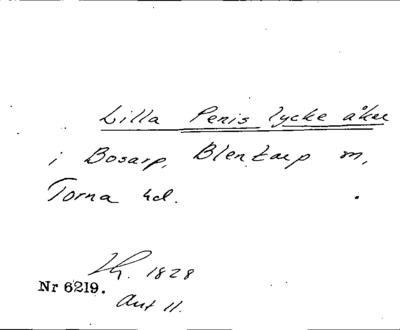 Lilla Penis lycke åker
i Bosarp, Blentarp sn,
Torna hd.
Lh. 1828
Nr 6219.
Akt 11.